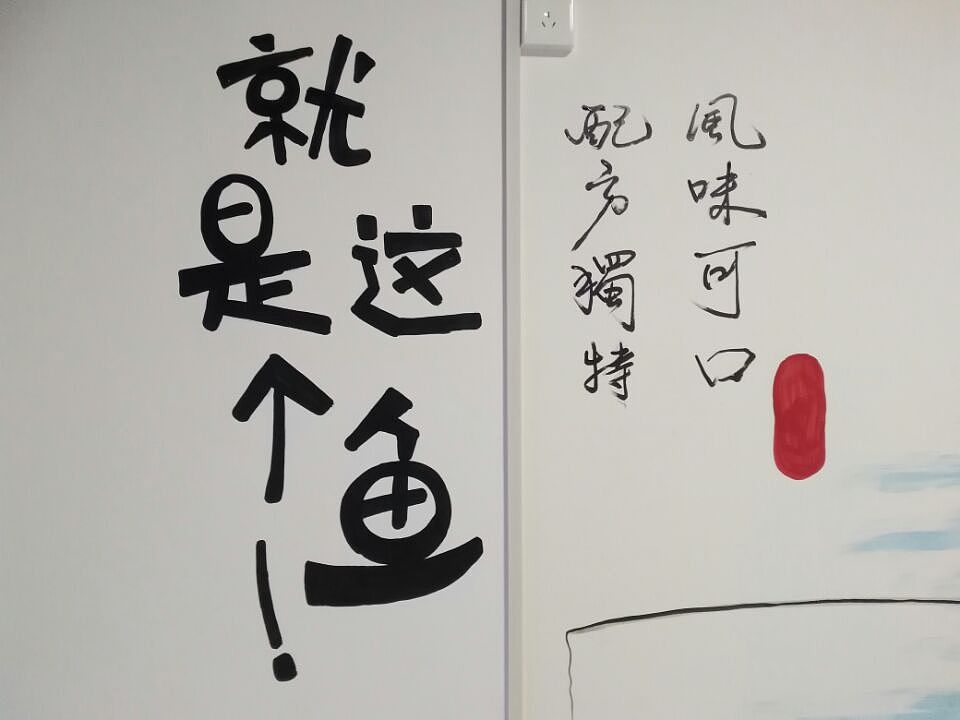 就是这个鱼！
風味可口
配方獨特